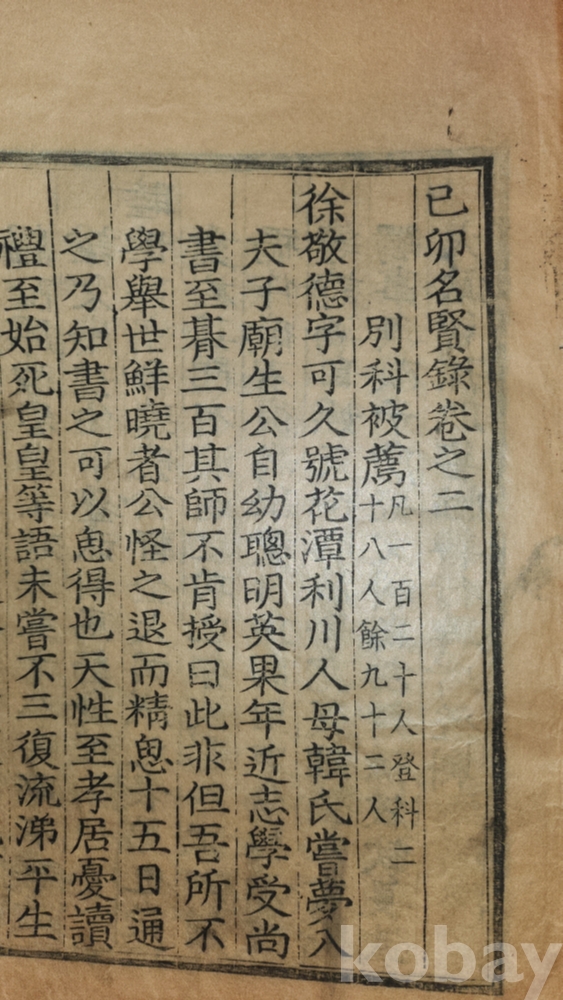 己卯名賢錄卷之二
別科被薦凡一百二十人登科二
十八人餘九十二人
徐敬德字可久號花潭利川人母韓氏嘗夢入
夫子廟生公自幼聰明英果年近志學受尚
書至朞三百其師不肯授曰此非但吾所不
學舉世鮮曉者公怪之退而精思十五日通
之乃知書之可以思得也天性至孝居憂讀
禮至始死皇皇等語未嘗不三復流涕平生
kobay